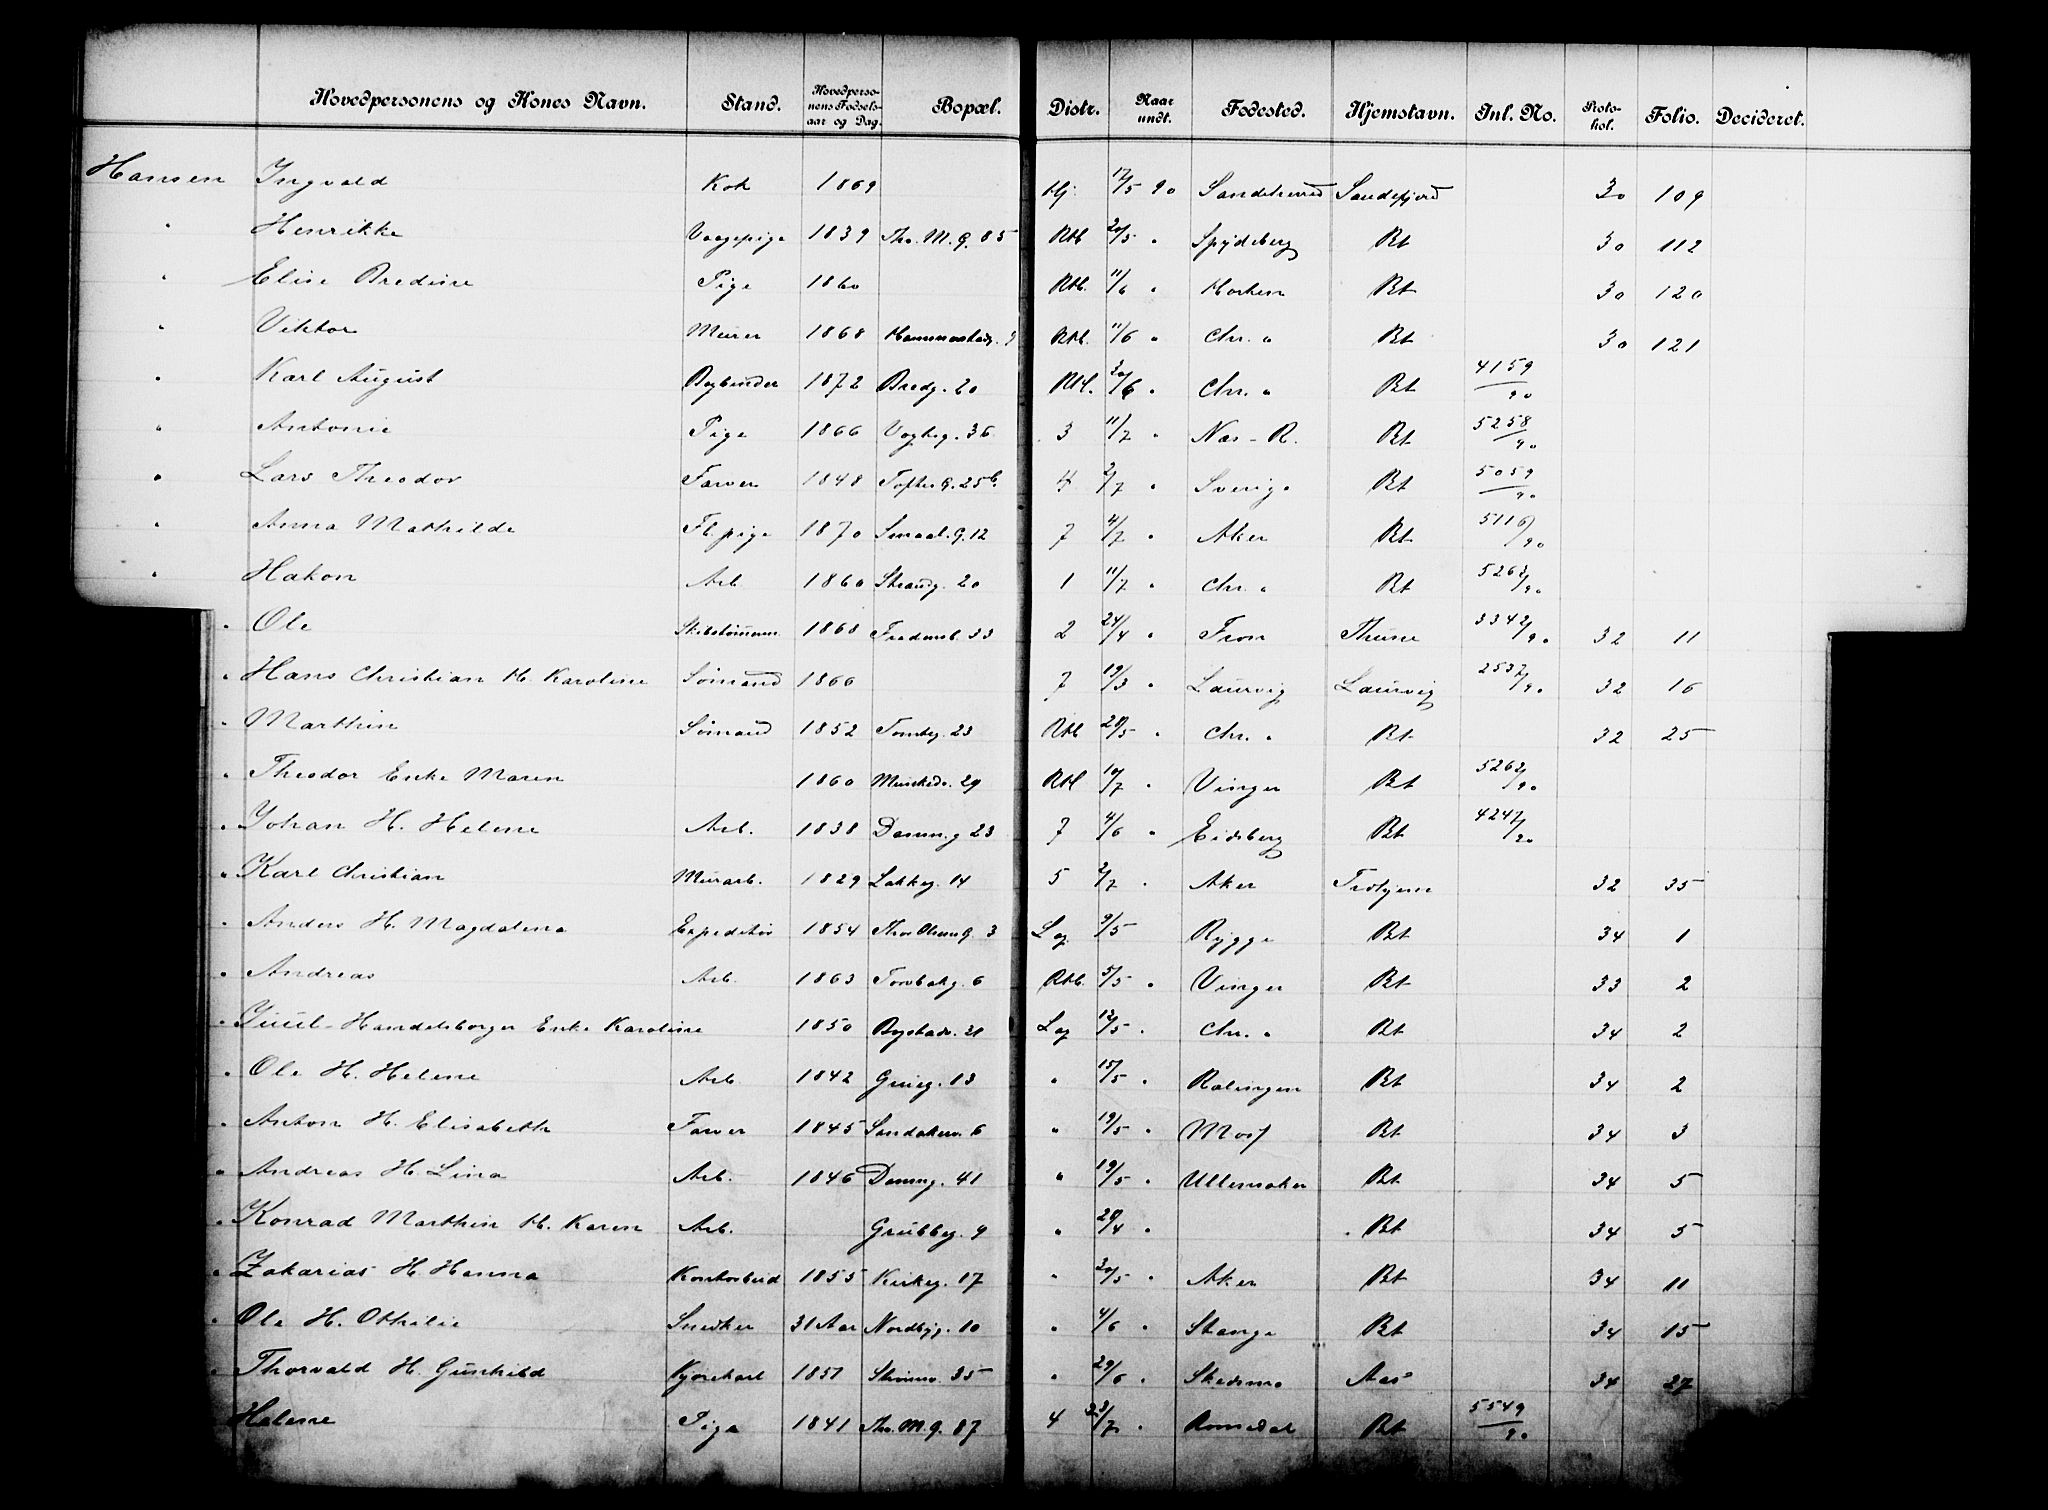 Hovedpersonens og Kones Navn. Stand. Hovedpersonens Fødselsaar og Dag. Bopæl. Distr. Naar undt. Fødested. Hjemstavn. Inl. No. Protokol. Folio. Decideret.
Hansen Ingvald Kok 1869 Hj. 17/5 90 Sandeherred Sandefjord 30 109
" Henrikke Vaagepige 1839 Thv. M. G. 85 Rtb 20/5 " Spydeberg Bt 30 112
" Elise Bredine Pige 1860 Rtb. 11/6 " Horten Bt 30 120
" Viktor Murer 1868 Hammerstadg. 9 Rtb. 11/6 " Chr. a Bt 30 121
" Karl August Bogbinder 1872 Bredg. 20 Rtb. 20/6 " Chr. a Bt 4159/90
" Antonie Pige 1866 Vogtsg. 36 3 11/7 " Næs - R. Bt 5258/90
" Lars Theodor Farver 1848 Toftes G. 25b. 4 2/7 " Sverige Bt 5059/90
" Anna Mathilde Fb. pige 1870 Smaal. G. 12 7 4/7 " Aker Bt 5116/90
" Hakon Arb 1860 Strandg. 20 1 11/7 " Chr. a Bt 5263/90
" Ole Skibstømmerm. 1868 Fredensb. 33 2 24/4 " Fron Thune 3342/90 32 11
" Hans Christian H. Karoline Sømand 1866 7 19/3 " Laurvig Laurvig 2537/90 32 16
" Marthin Sømand 1852 Tomteg. 23 Rtb 28/5 " Chr. a Bt 32 25
" Theodor Enke Maren 1860 Munkedv. 29 Rtb 10/7 " Vinger Bt 5262/90
" Johan H. Helene Arb. 1838 Dammg. 23 7 4/6 " Eidsberg Bt 4247/90
" Karl Christian Murarb. 1829 Lakkeg. 14 5 2/7 " Aker Trohjem 32 35
" Anders H. Magdalena Expeditør 1854 Thor Olsens G. 3 Log 9/5 Rygge Bt 34 1
" Andreas Arb. 1863 Torvbakg. 6 Rtb. 5/5 " Vinger Bt 33 2
" Juul-Handelsborger Enke Karoline 1850 Bogstadv. 21 Log 12/5 " Chr. a Bt 34 2
" Ole H. Helene Arb 1842 Grüneg. 13 " 15/5 " Rælingen Bt 34 2
" Anton H. Elisabeth Farver 1845 Sandakerv. 6 " 19/5 " Moss Bt 34 3
" Andreas H. Lina Arb. 1846 Dammg. 41 " 19/5 " Ullensaker Bt 34 5
" Konrad Marthin H. Karen Arb. Grubbeg. 9 " 28/4 " Bt 34 5
" Zakarias H. Hanna Kontorbud 1855 Kirkeg. 17 " 20/5 " Aker Bt 34 11
" Ole H. Othilie Snedker 31 Aar Nordbyg. 10 " 4/6 " Stange Bt 34 15
" Thorvald H. Gunhild Kjørekarl 1851 Strømsv. 35 " 29/6 " Skedsmo Aas 34 27
Helene Pige 1841 Thv. M. G. 87 4 23/7 " Romsdal Bt 5549/90